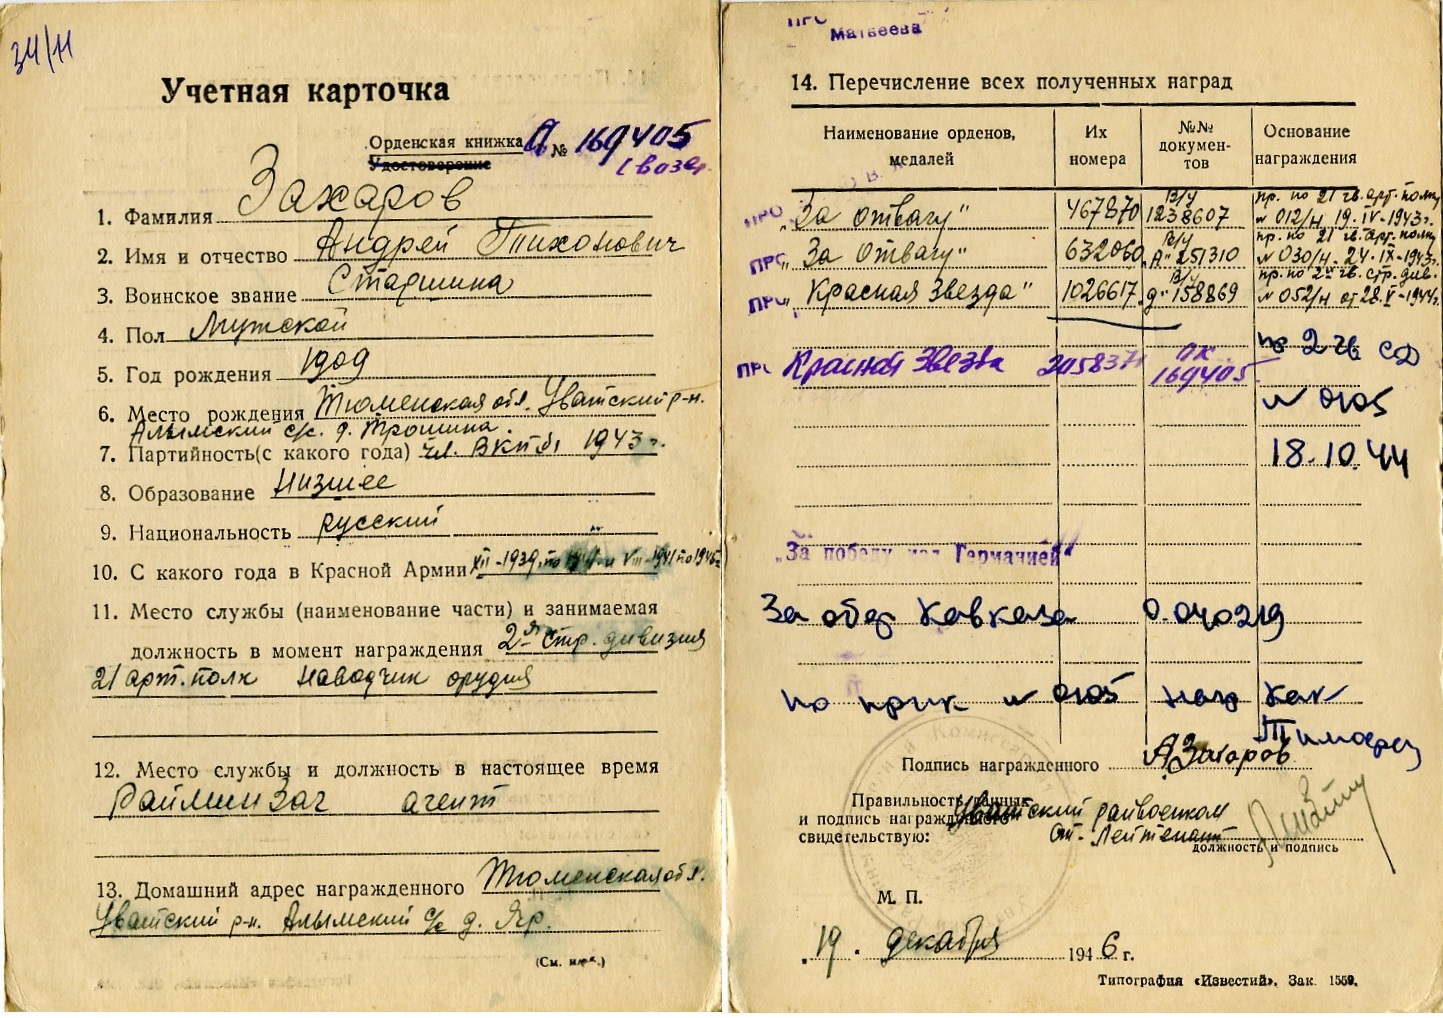 34/11
Учетная карточка
Орденская книжка А № 169405
Удостоверение
1. Фамилия Захаров
2. Имя и отчество Андрей Тихонович
3. Воинское звание Старшина
4. Пол Мужской
5. Год рождения 1909
6. Место рождения Тюменская обл. Уватский р-н.
Алымский с/с. д. Трошина.
7. Партийность(с какого года) чл. ВКП(б) 1943 г.
8. Образование Низшее
9. Национальность русский
10. С какого года в Красной Армии XII-1939 по и VIII-1941 по 1945
11. Место службы (наименование части) и занимаемая
должность в момент награждения 2я стр. дивизия
21 арт. полк наводчик орудия
12. Место службы и должность в настоящее время
агент
13. Домашний адрес награжденного Тюменская обл.
Уватский р-н. Алымский с/с д. Яр.
(См. )
Матвеева
14. Перечисление всех полученных наград
Наименование орденов, медалей
Их номера
№№ документов
Основание награждения
ПРС „За отвагу" 467870 в/у 1238607 пр. по 21 гв. арт. полку № 012/н 19.IV-1943 г.
ПРС „За отвагу" 632060 в/у „А" 251310 пр. по 21 гв. арт. полку № 030/н. 24.IX-1943 г.
ПРС „Красная Звезда" 1026617 в/у „д" 158869 пр. по 2й гв. стр. див. № 052/н от 28.V-1944 г.
ПРС Красная Звезда 205837 ок 169405 по 2 гв СД
№ 0105
18.10.44
„За победу над Германией"
За обор Кавказа 0.040219
по прик № 0105 нагр как
Тимофеев
Подпись награжденного АЗахаров
Правильность данных
и подпись награжденного
свидетельствую:
Уватский райвоенком
ст. Лейтенант
должность и подпись
М. П.
„19" декабря 1946 г.
Типография «Известий». Зак. 1559.